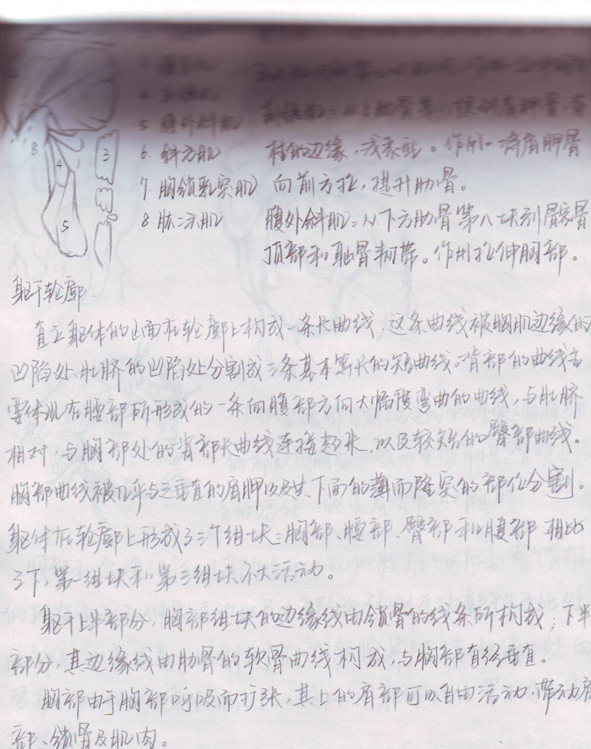 5 腹外斜肌
6. 斜方肌 柱的边缘,浅表能。作用:将肩胛骨
7. 胸锁乳突肌 向前方拉,提升肋骨。
8 肱二头肌 腹外斜肌:从下方肋骨第八块到髋骨
顶部和耻骨韧带。作用拉伸胸部。
8
3
4
5
躯干轮廓.
直立躯体的凸面在轮廓上构成一条长曲线,这条曲线被胸肌边缘的
凹陷处、肚脐的凹陷处分割成三条基本等长的短曲线。背部的曲线主
要体现在腰部所形成的一条向腹部方向大幅度弯曲的曲线,与肚脐
相对,与胸部处的背部长曲线连接起来,以及较短的臀部曲线。
胸部曲线被几乎与之垂直的肩胛以及其下面的薄而隆突的部位分割。
躯体在轮廓上形成了三个组块:胸部、腰部、臀部和腹部 相比
之下,第一组块和第三组块不大活动。
躯干上半部分,胸部组块的边缘线由锁骨的线条所构成;下半
部分,其边缘线由肋骨的软骨曲线构成,与胸部直径垂直。
胸部由于胸部呼吸而扩张,其上的肩部可以自由活动,带动肩
部、锁骨及肌肉。